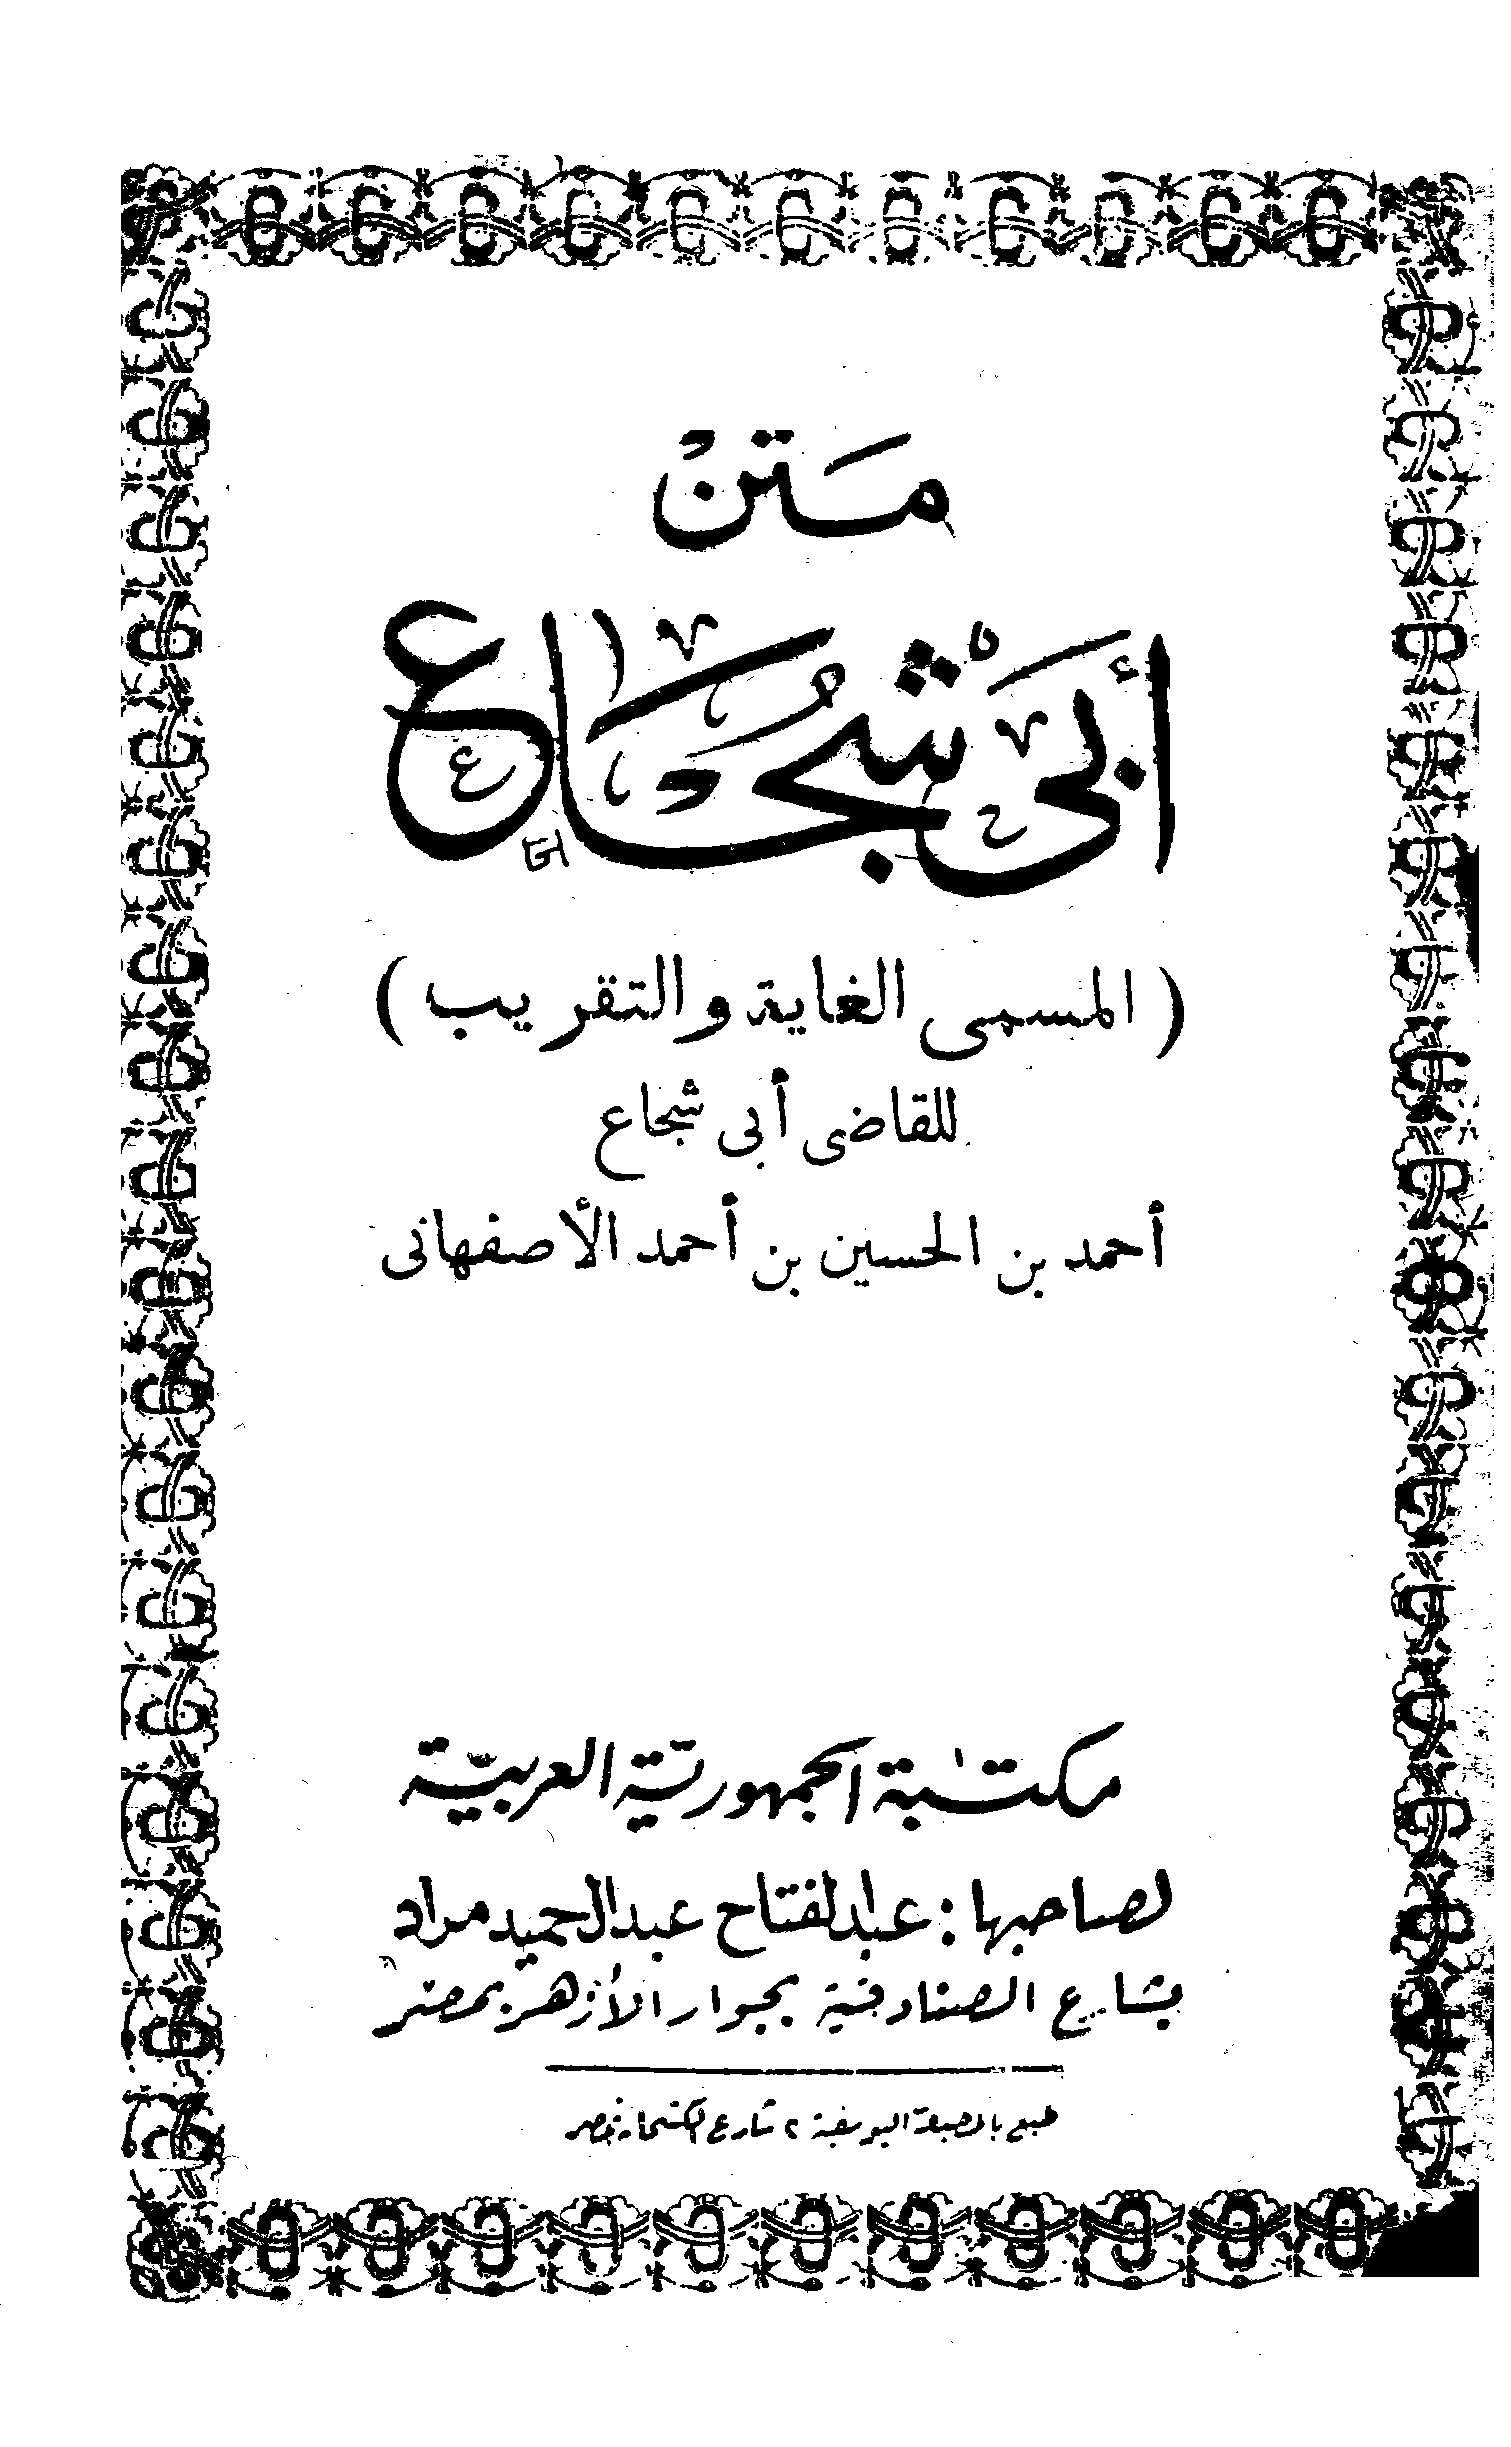 متن
أبي شجاع
( المسمى الغاية والتقريب )
للقاضى أبى شجاع
أحمد بن الحسين بن أحمد الأصفهانى
مكتبة الجمهورية العربية
لصاحبها : عبد الفتاح عبد الحميد مراد
بشارع الصنادقية بجوار الأزهر بمصر
طبع بالمطبعة اليوسفية ٢ شارع